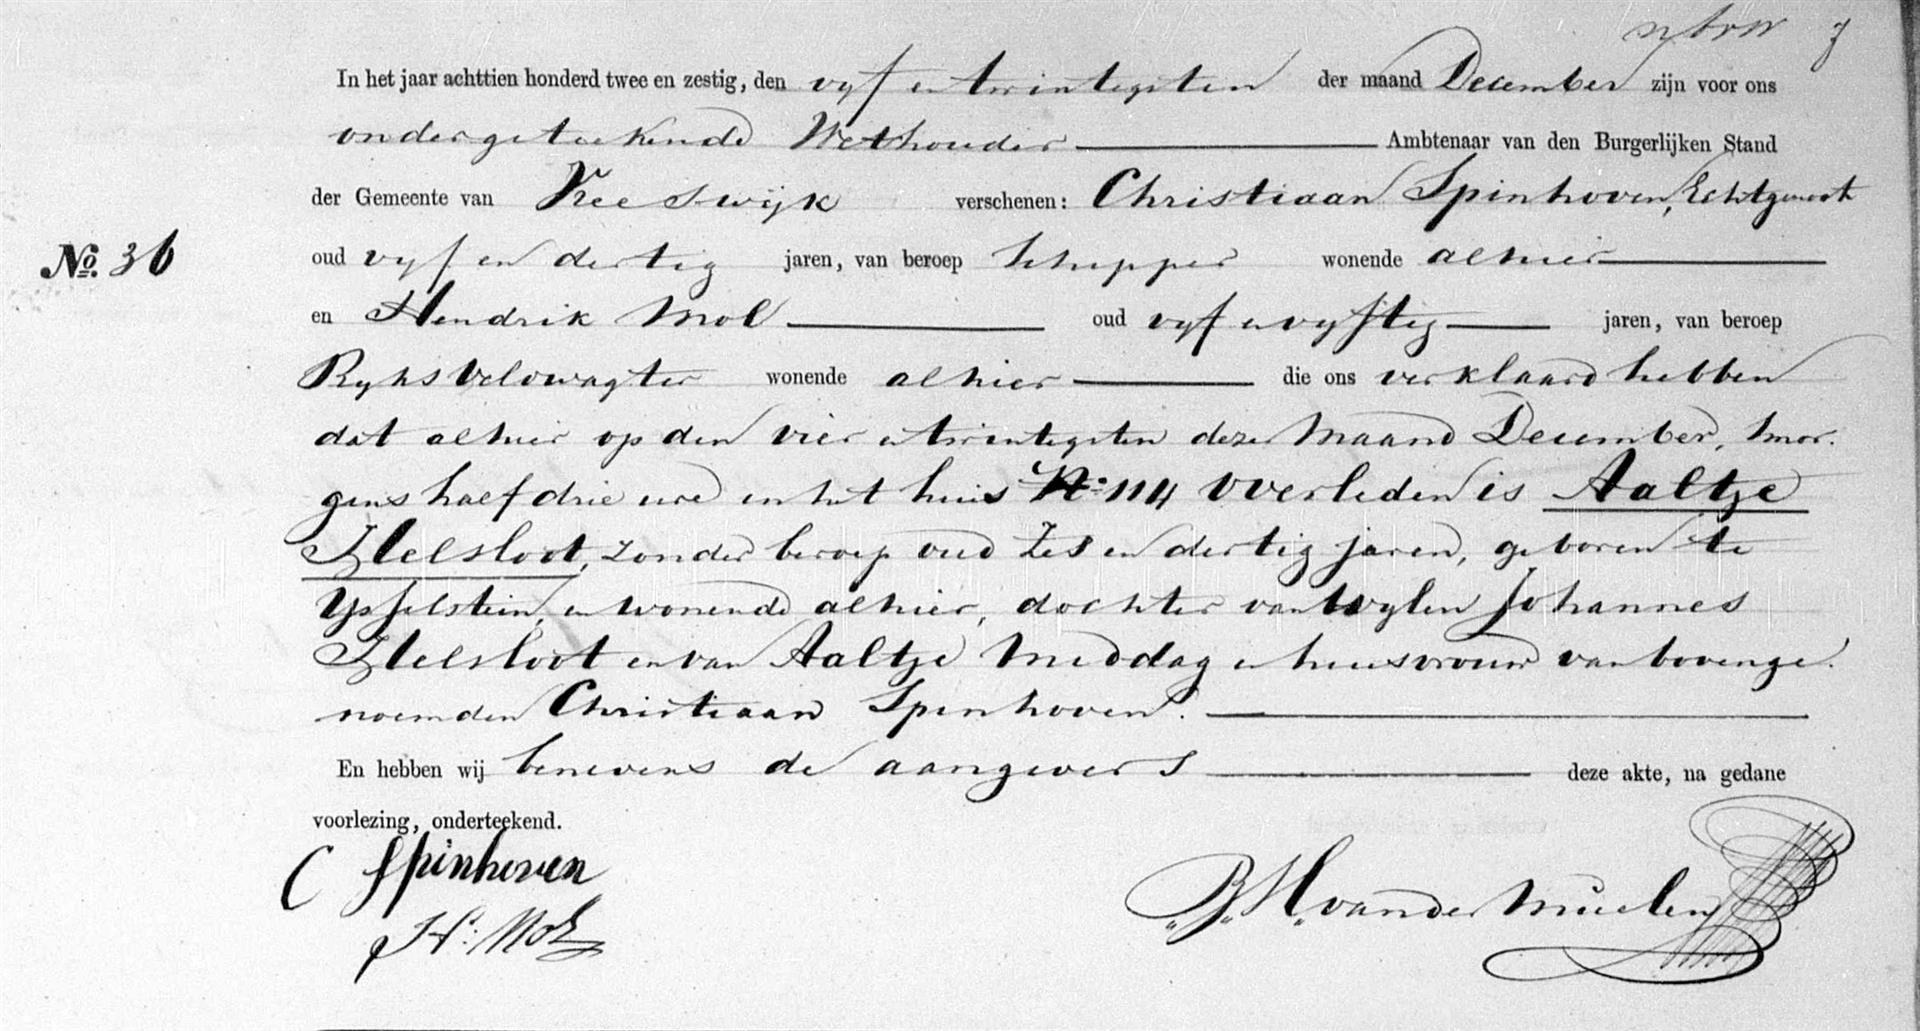 In het jaar achttien honderd twee en zestig, den vyf en twintigsten der maand December zijn voor ons
ondergeteekende Wethouder Ambtenaar van den Burgerlijken Stand
der Gemeente van Vreeswijk verschenen: Christiaan Spinhoven, Echtgenoot
No. 36
oud vyf en dertig jaren, van beroep schipper wonende alhier
en Hendrik Mol oud vyf en vyftig jaren, van beroep
Ryksveldwagter wonende alhier die ons verklaard hebben
dat alhier op den vier en twintigsten dezer Maand December, smor.
gens half drie ure in het huis No. 114 overleden is Aaltje
Helsloot, zonder beroep oud Zes en dertig jaren, geboren te
Ysselstein, en wonende alhier, dochter van Wylen Johannes
Helsloot en van Aaltje Middag en huisvrouw van bovenge.
noemden Christiaan Spinhoven.
En hebben wij benevens de aangevers deze akte, na gedane
voorlezing, onderteekend.
C Spinhoven
H: Mol
B. H. van der Muelen